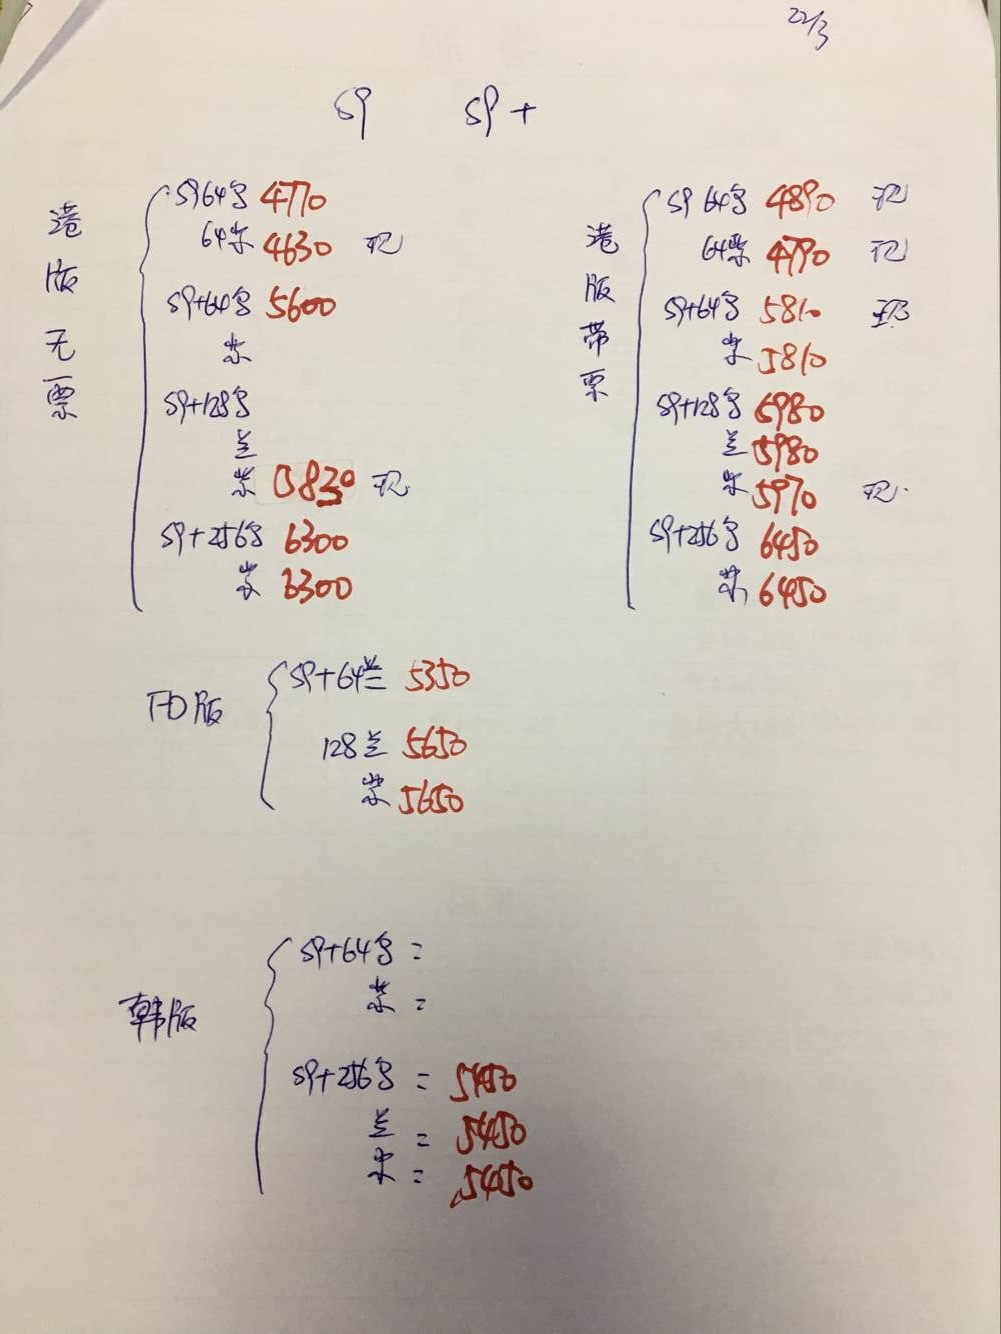 22/3
S9 S9+
港版无票
S9 64 4770
64紫 4630 现
S9+64 5600
紫
S9+128
兰
紫 5830 现
S9+256 6300
紫 6300
港版带票
S9 64 4890 现
64紫 4790 现
S9+64 5810 现
紫 5810
S9+128 5980
兰 5980
紫 5970 现.
S9+256 6450
紫 6450
版
S9+64兰 5350
128兰 5650
紫 5650
韩版
S9+64 =
紫 =
S9+256 = 5450
兰 = 5450
紫 = 5450